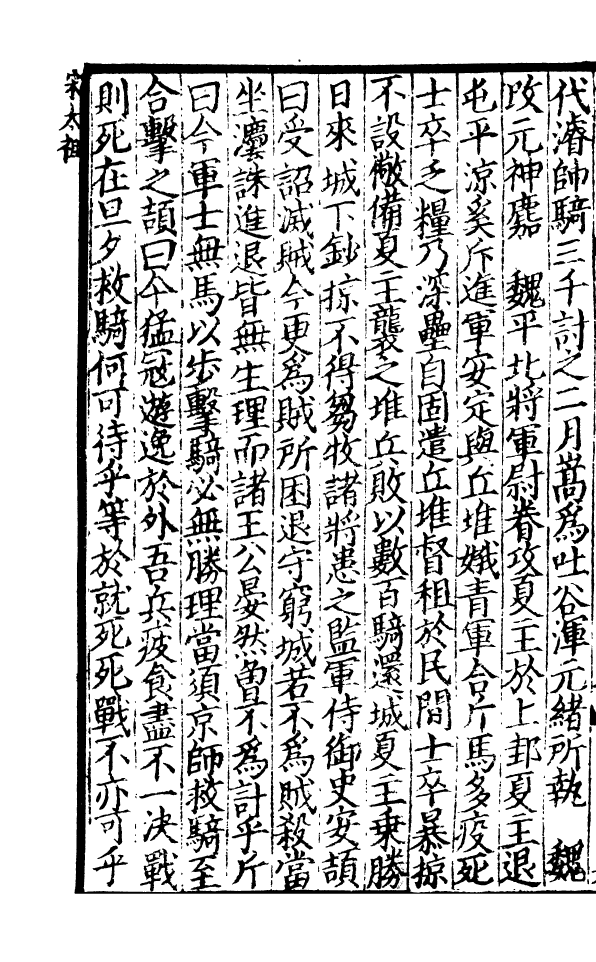 代濬師騎三千討之二月暠爲吐谷渾元緒所執　魏
改元神䴥　魏平北將軍尉眷攻夏王於上邽夏主退
屯平涼奚斤進軍安定與丘堆娥青軍合斤馬多疫死
士卒乏糧乃深壘自固遣丘堆督租於民間士卒暴掠
不設儆備夏主襲之堆兵敗以數百騎還城夏主乗勝
日來城下鈔掠不得芻牧諸將患之監軍侍御史安頡
曰受詔滅賊今更爲賊所困退守窮城若不爲賊殺當
坐灋誅進退皆無生理而諸王公晏然曽不爲計乎斤
曰今軍士無馬以步擊騎必無勝理當須京師救騎至
合擊之頡曰今猛冦遊逸於外吾兵疲食盡不一決戰
則死在旦夕救騎何可待乎等於就死死戰不亦可乎
宋太祖